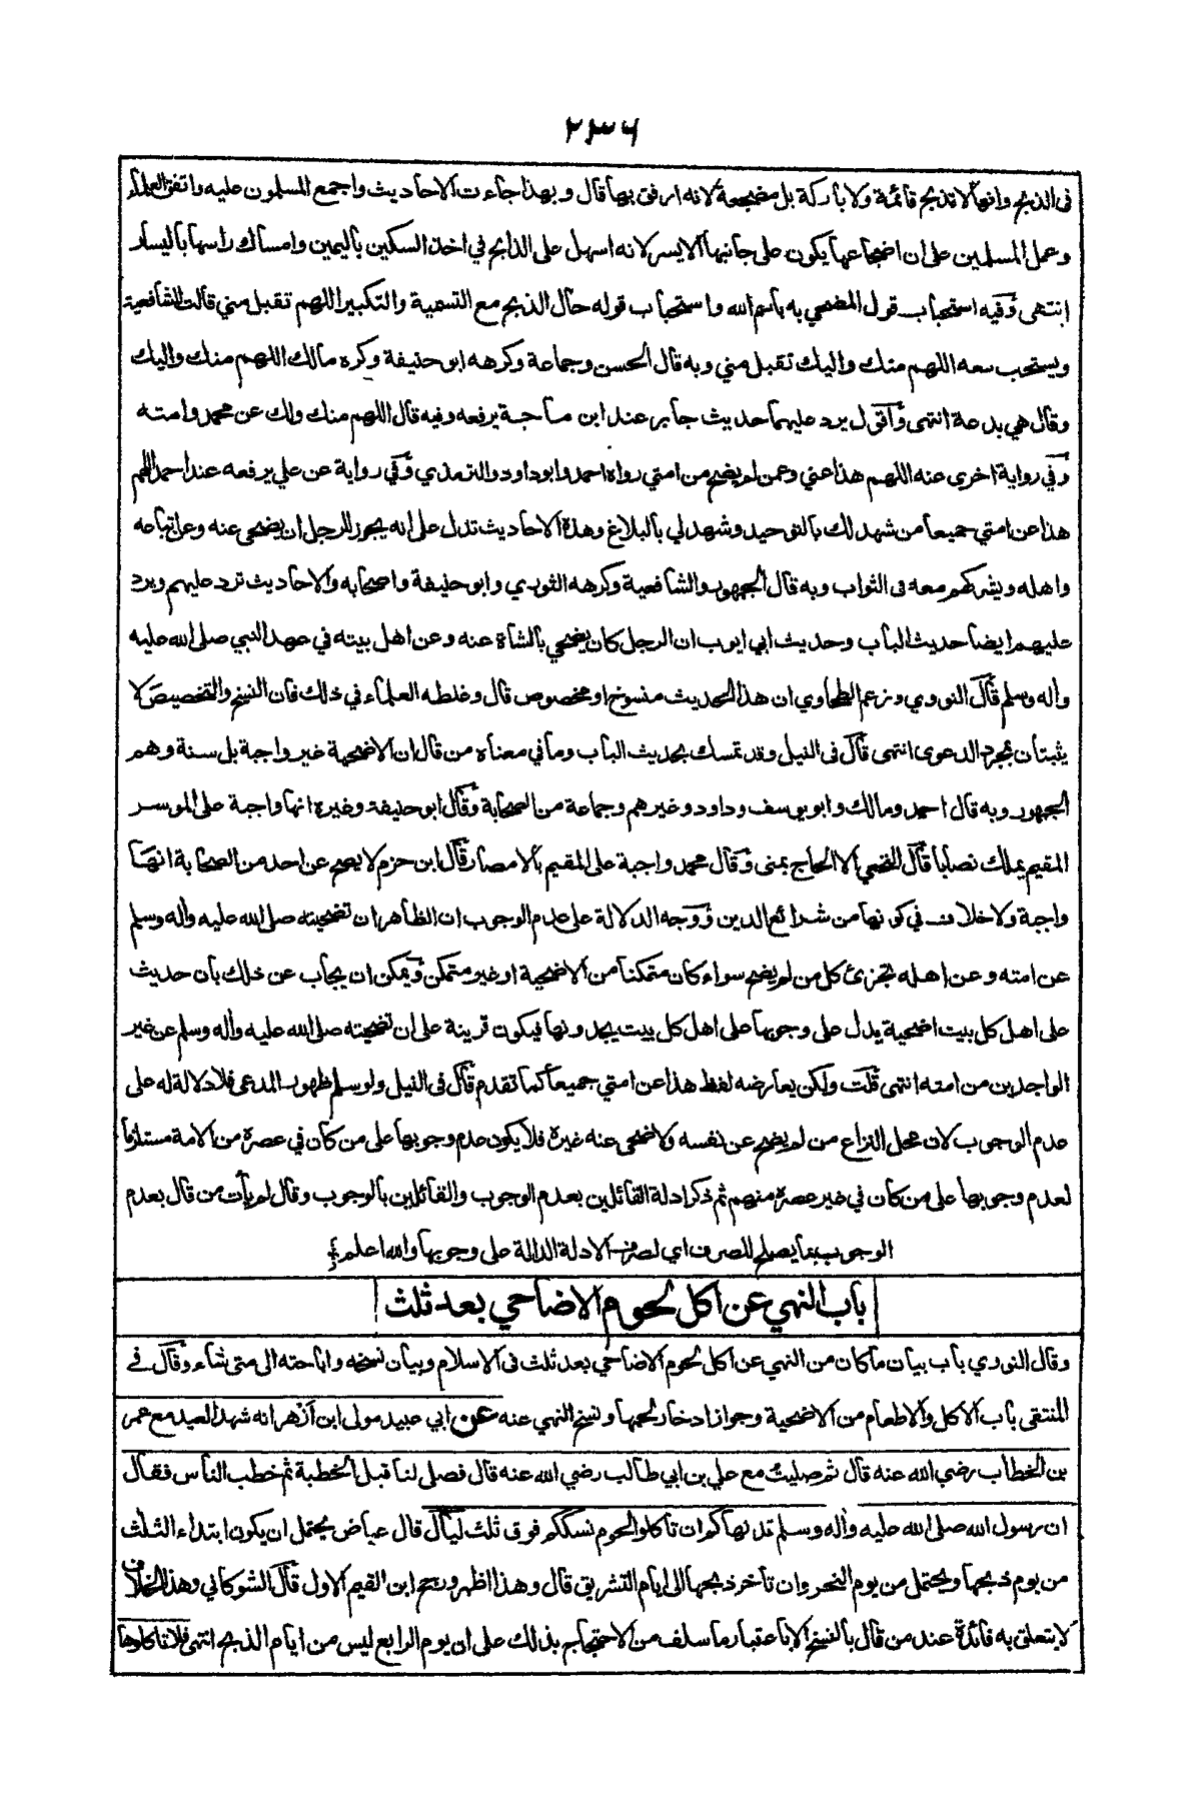 ٢٣٦
فى الذبح وانها لا تذبح قائمة ولا باركة بل مضجعة لانه ارفق بها قال وبهذا جاءت الاحاديث واجمع المسلمون عليه واتفق العلماء
وعمل المسلمين على ان اضجاعها يكون على جانبها الايسر لانه اسهل على الذابح في اخذ السكين باليمين وامساك راسها باليسار
انتهى وفيه استحباب قول المضحي به باسم الله واستحباب قوله حال الذبح مع التسمية والتكبير اللهم تقبل مني قالت الشافعية
ويستحب معه اللهم منك واليك تقبل مني وبه قال الحسن وجماعة وكرهه ابو حنيفة وكره مالك اللهم منك واليك
وقال هي بدعة انتهى واقول يرد عليهما حديث جابر عند ابن ماجة يرفعه وفيه قال اللهم منك ولك عن محمد وامته
وفي رواية اخرى عنه اللهم هذا عني وعمن لم يضح من امتي رواه احمد وابوداود والترمذي وفي رواية عن علي يرفعه عند احمد اللهم
هذا عن امتي جميعا من شهد لك بالتوحيد وشهد لي بالبلاغ وهذه الاحاديث تدل على انه يجوز للرجل ان يضحى عنه وعن اتباعه
واهله ويشركهم معه فى الثواب وبه قال الجمهور والشافعية وكرهه الثوري وابو حنيفة واصحابه والاحاديث ترد عليهم ويرد
عليهم ايضا حديث الباب وحديث ابي ايوب ان الرجل كان يضحي بالشاة عنه وعن اهل بيته في عهد النبي صلى الله عليه
واله وسلم قال النووي وزعم الطحاوي ان هذا الحديث منسوخ او مخصوص قال وغلطه العلماء في ذلك فان النسخ والتخصيص لا
يثبتان بمجرد الدعوى انتهى قال فى النيل وقد تمسك بحديث الباب وما في معناه من قال ان الاضحية غير واجبة بل سنة وهم
الجمهور وبه قال احمد ومالك وابو يوسف وداود وغيرهم وجماعة من الصحابة وقال ابو حنيفة وغيره انها واجبة على الموسر
المقيم يملك نصابا قال النخعي الا الحاج بمنى وقال محمد واجبة على المقيم بالامصار قال ابن حزم لا يصح عن احد من الصحابة انها
واجبة ولا خلاف في كونها من شرائع الدين ووجه الدلالة على عدم الوجوب ان الظاهر ان تضحيته صلى الله عليه واله وسلم
عن امته وعن اهله تجزئ كل من لم يضح سواء كان متمكنا من الاضحية او غير متمكن ويمكن ان يجاب عن ذلك بان حديث
على اهل كل بيت اضحية يدل على وجوبها على اهل كل بيت يجدونها فيكون قرينة على ان تضحيته صلى الله عليه واله وسلم عن غير
الواجدين من امته انتهى قلت ولكن يعارضه لفظ هذا عن امتي جميعا كما تقدم قال فى النيل ولو سلم ظهور المدعى فلا دلالة له على
عدم الوجوب لان محل النزاع من لم يضح عن نفسه ولا ضحى عنه غيره فلا يكون عدم وجوبها على من كان في عصره من الامة مستلزما
لعدم وجوبها على من كان في غير عصره منهم ثم ذكر ادلة القائلين بعدم الوجوب والقائلين بالوجوب وقال لم يأت من قال بعدم
الوجوب بما يصلح للصرف اي لصرف الادلة الدالة على وجوبها والله اعلم
باب النهي عن اكل لحوم الاضاحي بعد ثلث
وقال النووي باب بيان ما كان من النهي عن اكل لحوم الاضاحي بعد ثلث فى الاسلام وبيان نسخه واباحته الى متى شاء وقال في
المنتقى باب الاكل والاطعام من الاضحية وجواز ادخار لحمها ونسخ النهي عنه عن ابي عبيد مولى ابن ازهر انه شهد العيد مع عمر
بن الخطاب رضي الله عنه قال ثم صليت مع علي بن ابي طالب رضي الله عنه قال فصلى لنا قبل الخطبة ثم خطب الناس فقال
ان رسول الله صلى الله عليه واله وسلم قد نهاكم ان تأكلوا لحوم نسككم فوق ثلث ليال قال عياض يحتمل ان يكون ابتداء الثلث
من يوم ذبحها ويحتمل من يوم النحر وان تأخر ذبحها الى ايام التشريق قال وهذا اظهر ورجح ابن القيم الاول قال الشوكاني وهذا الخلاف
لا يتعلق به فائدة عند من قال بالنسخ الا باعتبار ما سلف من الاحتجاج بذلك على ان يوم الرابع ليس من ايام الذبح انتهى فلا تاكلوها